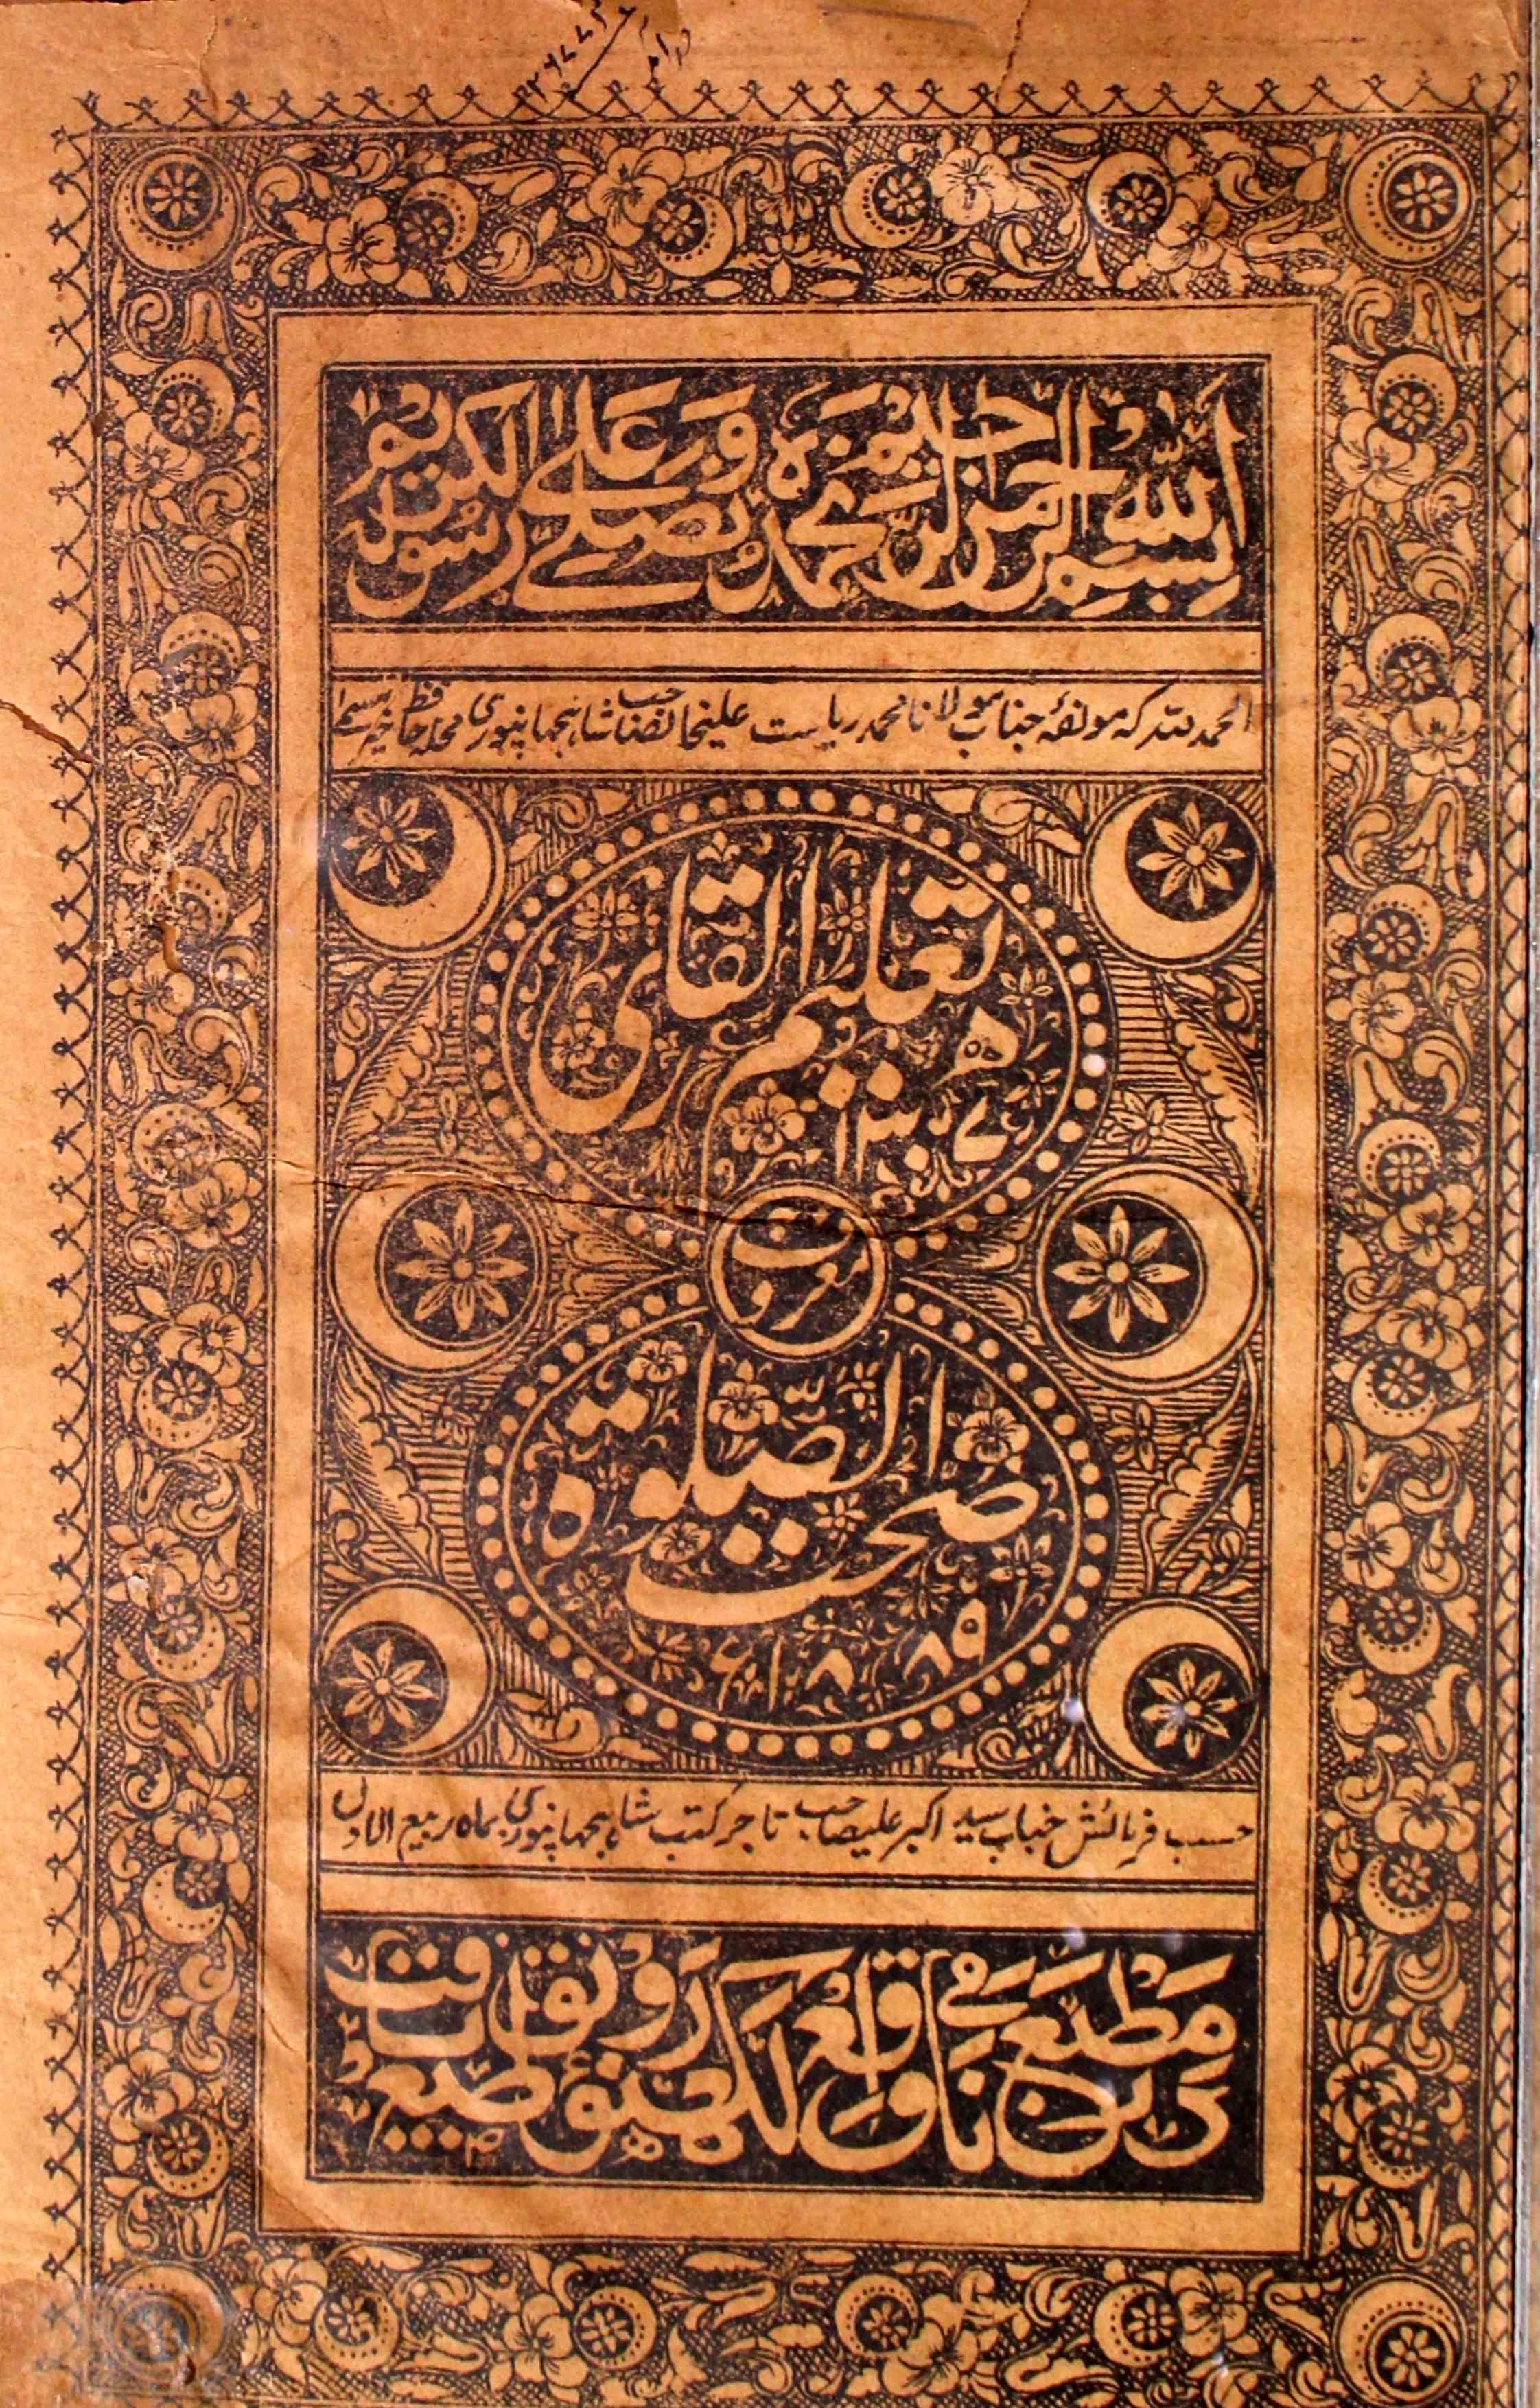 بسم الله الرحمن الرحيم نحمده ونصلي على رسوله الكريم
الحمد للہ کہ مولفۂ جناب مولانا محمد ریاست علیخانصاحب شاہجہانپوری محلہ
تعليم القاری
۱۳۰۷ھ
معروف
صحت الصلوة
۱۸۸۹ع
حسب فرمائش جناب سید اکبر علیصاحب تاجر کتب شاہجہانپوری بماہ ربیع الاول
مطبع واقع لکھنؤ